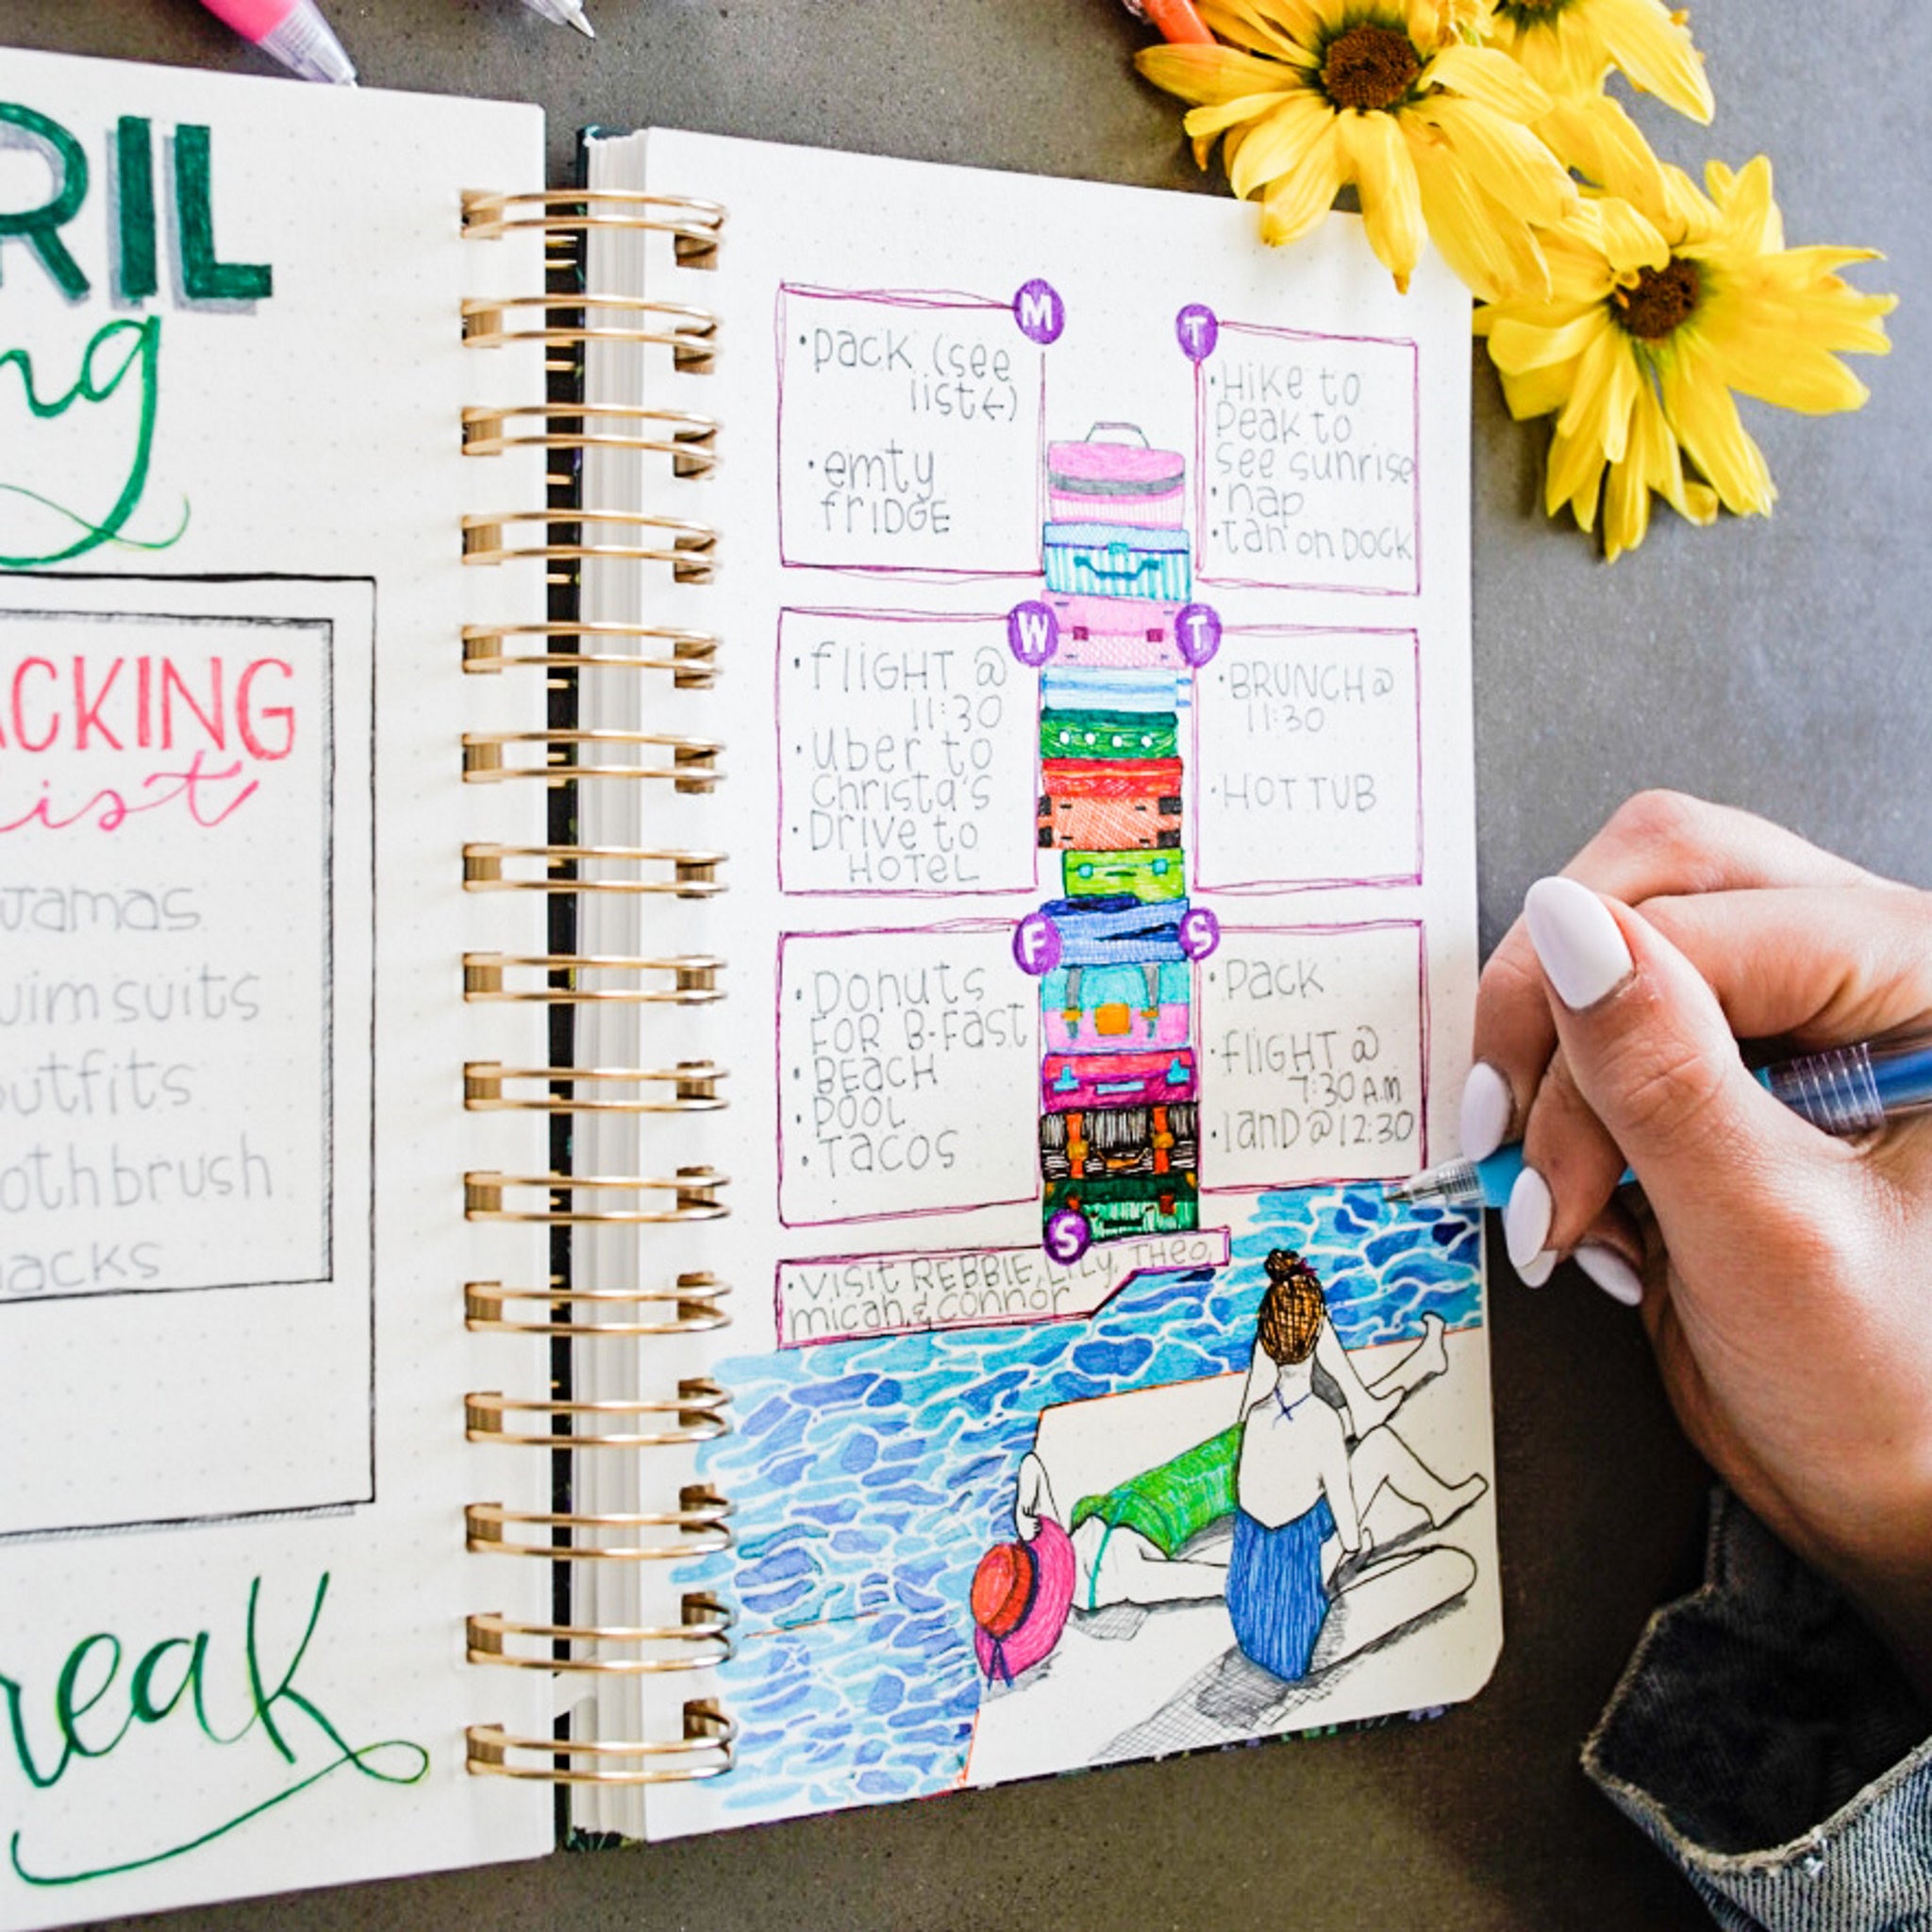 RIL
ng
ACKING
ist
jamas
uimsuits
outfits
othbrush
nacks
reak
M
• pack (see
list←)
• emty
friDGE
T
• Hike to
Peak to
see sunrise
• nap
• tan on Dock
W
• fliGHT @
11:30
• uber to
christa's
• Drive to
HOTeL
T
• BRUNCH @
11:30
• HOT TUB
F
• Donuts
FOR B-Fast
• BEACH
• POOL
• TACOS
S
• Pack
• fliGHT @
7:30 A.M
• lanD @ 12:30
S
• Visit REBBIE, LiLy, THeo,
micah, & connor